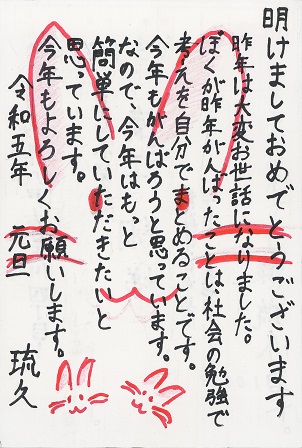 明けましておめでとうございます
昨年は大変お世話になりました。
ぼくが昨年がんばったことは、社会の勉強で
考えを自分でまとめることです。
今年もがんばろうと思っています。
なので、今年はもっと
簡単にしていただきたいと
思っています。
今年もよろしくお願いします。
令和五年 元旦
琉久